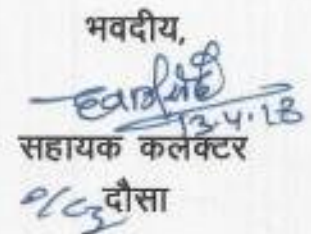 भवदीय,
13.4.18
सहायक कलेक्टर
दौसा